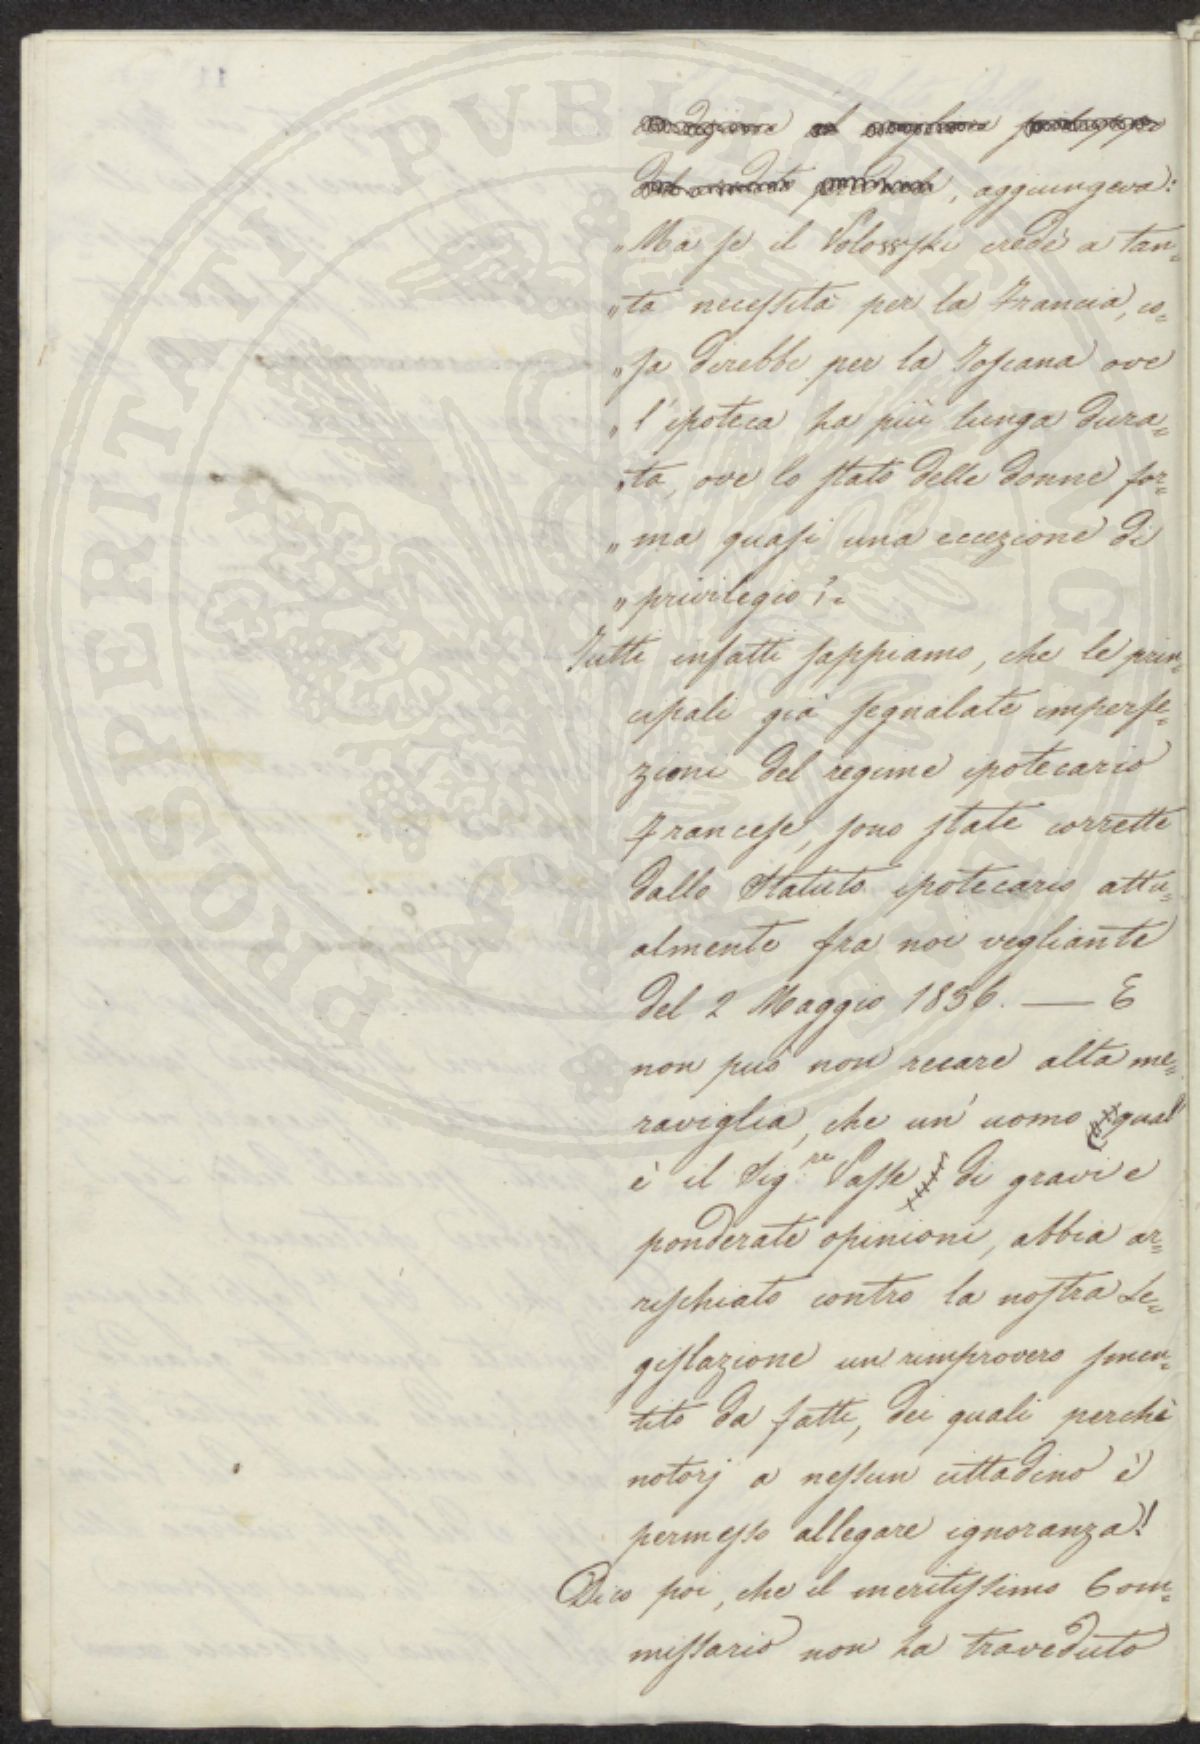 aggiungeva:
„ Ma se il Volosski credè a tan=
„ ta necessità per la Francia, co=
„ sa direbbe per la Toscana ove
„ l'ipoteca ha più lunga dura=
„ ta, ove lo stato delle donne for=
„ ma quasi una eccezione di
„ privilegio?„
Tutti infatti sappiamo, che le prin=
cipali già segnalate imperfe=
zioni del regime ipotecario
Francese, sono state corrette
dallo Statuto ipotecario attu=
almente fra noi vegliante
del 2 Maggio 1836. — E
non può non recare alta me=
raviglia, che un' uomo qual'
è il Sig.re di gravi e
ponderate opinioni, abbia ar=
rischiato contro la nostra Le=
gislazione un rimprovero smen=
tito da fatti, dei quali perchè
notorj a nessun cittadino è
permesso allegare ignoranza!
Dico poi, che il meritissimo Com=
missario non ha traveduto
PROSPERITATI PUBLICAE AUGENDAE